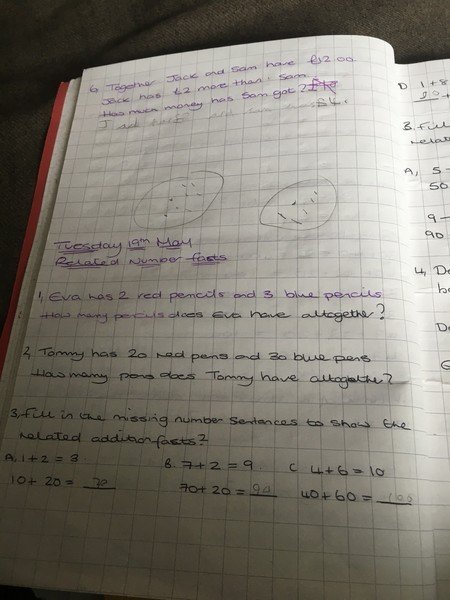 6. Together Jack and Sam have £12.00.
Jack has £2 more than Sam
How much money has Sam got?
J ad
Tuesday 19th May
Related Number facts
1, Eva has 2 red pencils and 3 blue pencils
How many pencils does Eva have altogether?
2, Tommy has 20 red pens and 30 blue pens
How many pens does Tommy have altogether?
3, Fill in the missing number sentences to show the
related addition facts?
A, 1+2 = 3. B. 7+2 = 9. C 4+6 = 10
10+ 20 = 30 70+20 = 90 40+60 = 100
D 1+8
3. Fill
relat
A, 5 -
50
9 -
90
4, De
be
De